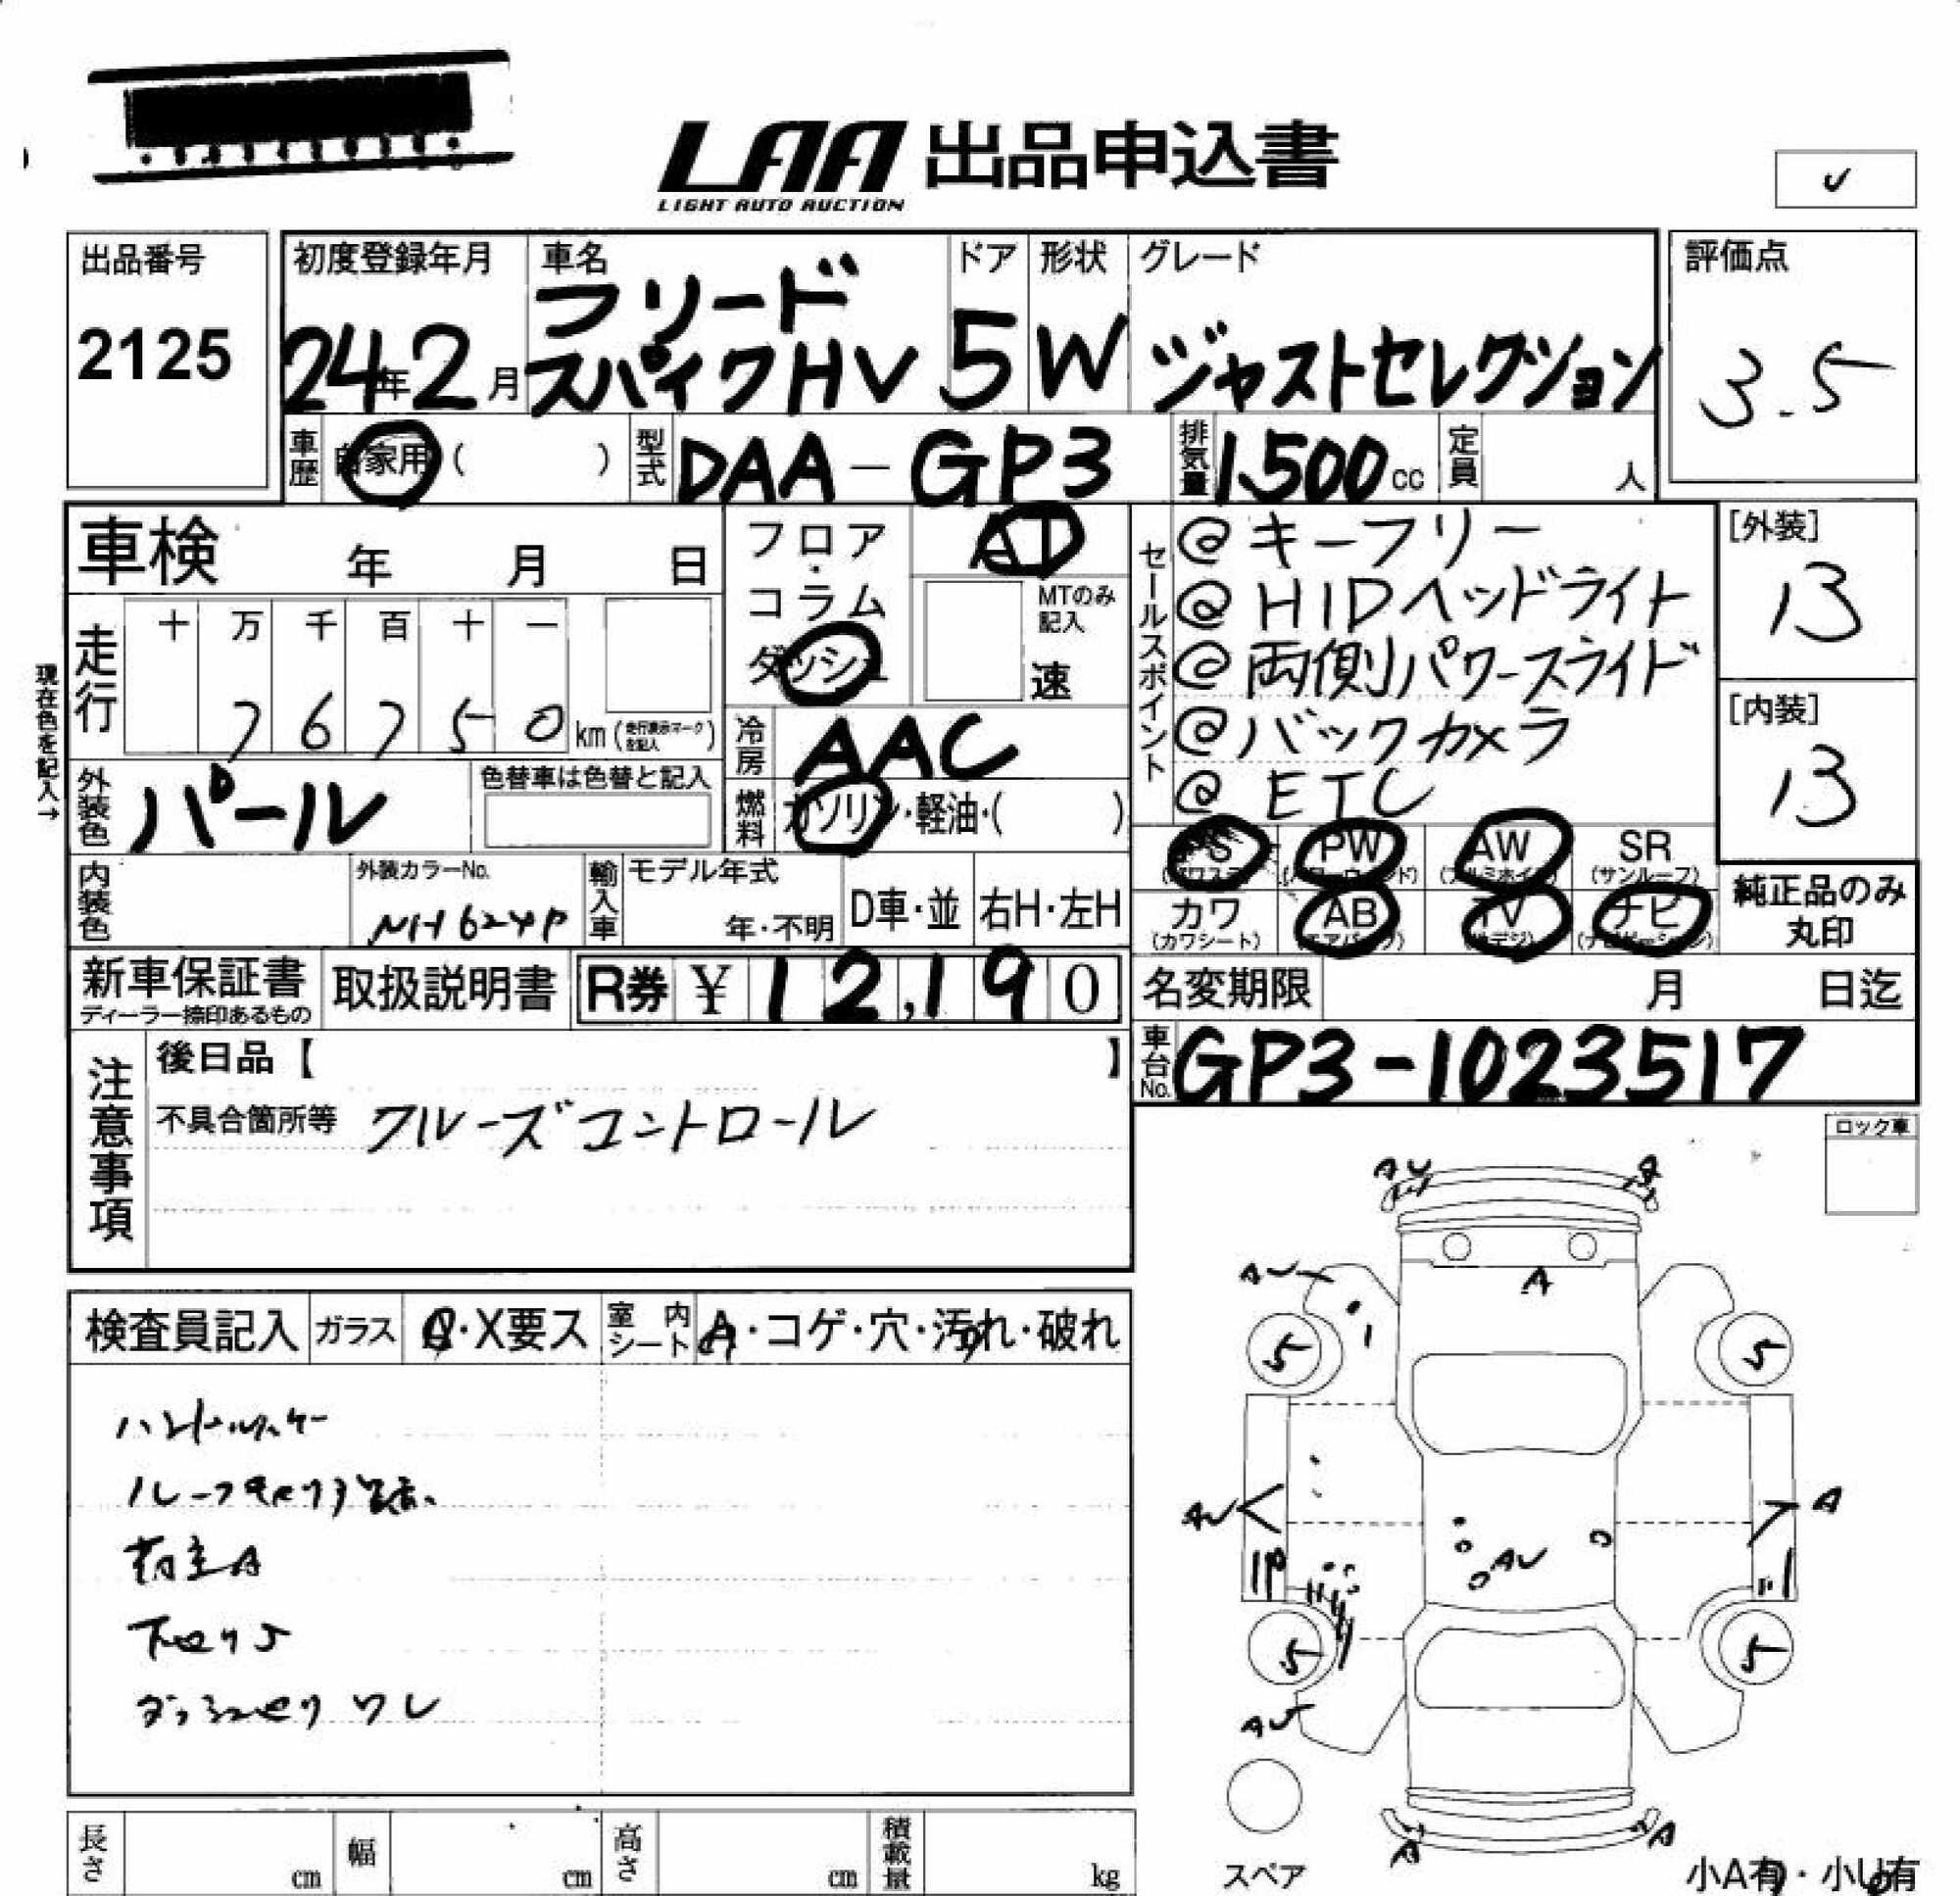 LAA 出品申込書
LIGHT AUTO AUCTION
出品番号
2125
初度登録年月
24年2月
車名
フリード
スパイクHV
ドア
5
形状
W
グレード
ジャストセレクション
評価点
3.5
車歴 自家用 ( )
型式 DAA-GP3
排気量 1.500 cc
定員 人
車検 年 月 日
フロア・
コラム
ダッシュ
AT
MTのみ
記入
速
現在色を記入→
走行 十 万 千 百 十 一
7 6 7 5 0 km (走行表示マークを記入)
冷房 AAC
外装色 パール
色替車は色替と記入
燃料 ガソリン・軽油・( )
内装色
外装カラーNo.
NH624P
輸入車
モデル年式
年・不明
D車・並
右H・左H
セールスポイント
@ キーフリー
@ HIDヘッドライト
@ 両側パワースライド
@ バックカメラ
@ ETC
[外装]
13
[内装]
13
PS PW AW SR
(サンルーフ)
カワ AB TV ナビ
(カワシート) (エアバック) (ナビゲーション)
純正品のみ
丸印
新車保証書
ディーラー捺印あるもの
取扱説明書
R券 ¥ 12,190
名変期限 月 日迄
車台No. GP3-1023517
注意事項
後日品【 】
不具合箇所等 クルーズコントロール
ロック車
検査員記入
ガラス
A・X要ス
室内シート
A・コゲ・穴・汚れ・破れ
荷室A
下回りS
ダッシュセリ ワレ
AU A
AU A
5 5
AU A
AU
5 5
AU
A A
スペア
小A有・小U有
長さ cm
幅 cm
高さ cm
積載量 kg